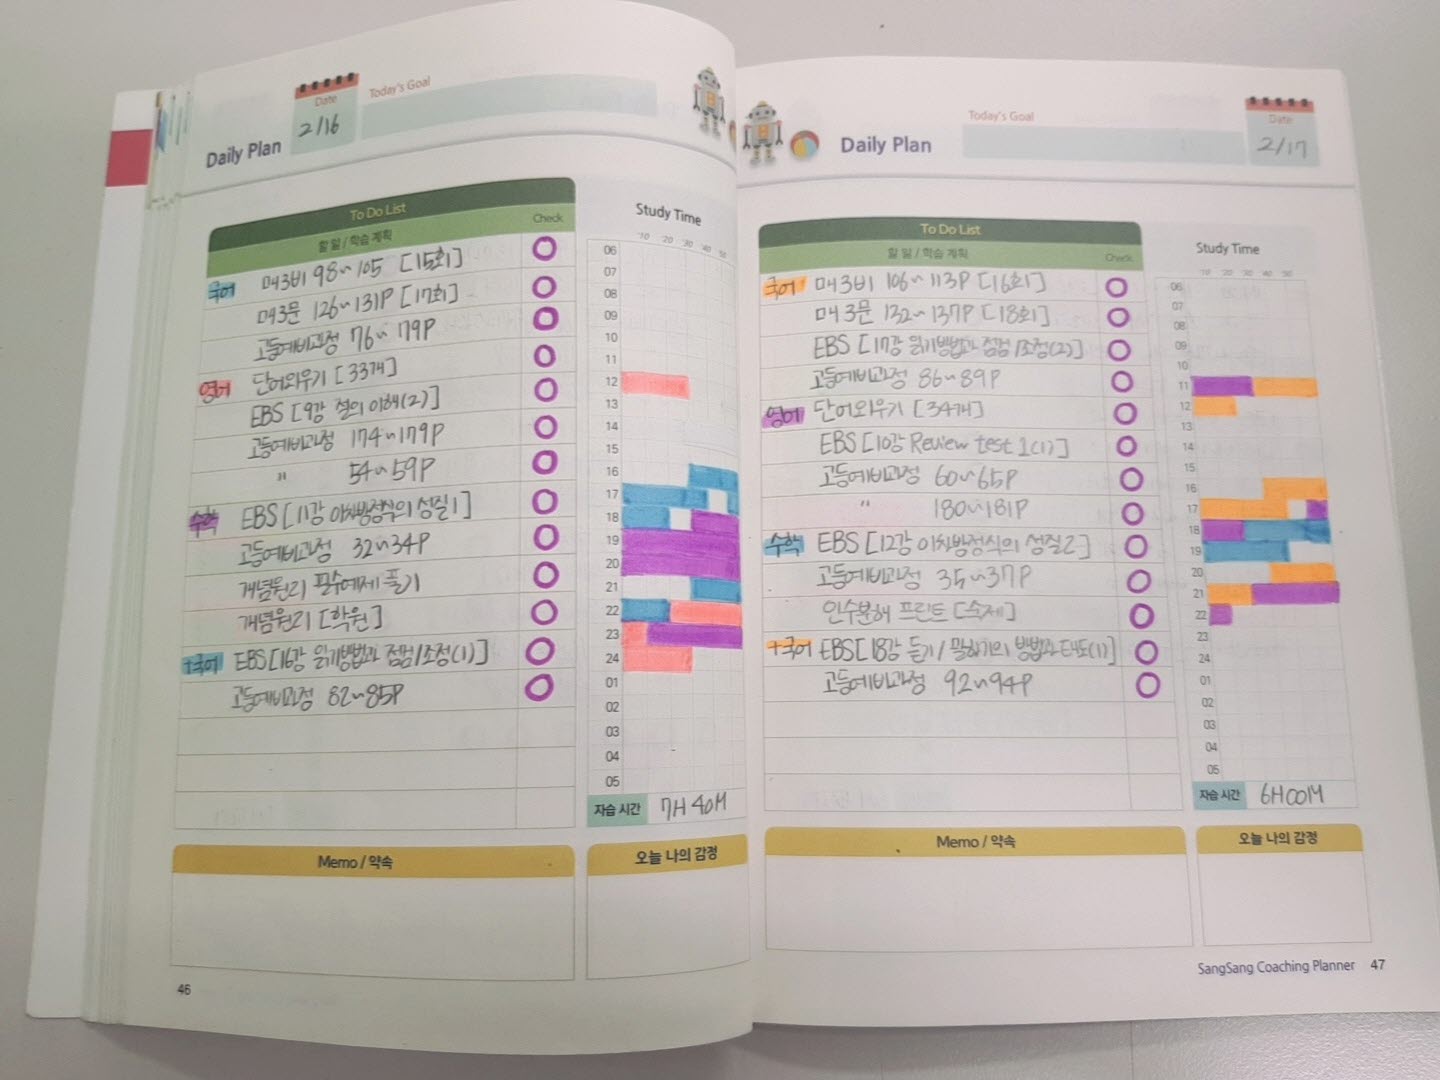 Date
Today's Goal
2/16
Daily Plan
To Do List
할 일 / 학습 계획
Check
국어 매3비 98~105 [15회]
매3문 126~131P [17회]
고등예비과정 76~79P
영어 단어외우기 [33개]
EBS [9강 절의 이해(2)]
고등예비과정 174~179P
" 54~59P
수학 EBS [11강 이차방정식의 성질1]
고등예비과정 32~34P
개념원리 필수예제 풀기
개념원리 [학원]
+국어 EBS [16강 읽기방법과 점검/조정(1)]
고등예비과정 82~85P
Study Time
'10 '20 '30 '40 '50
06
07
08
09
10
11
12
13
14
15
16
17
18
19
20
21
22
23
24
01
02
03
04
05
자습 시간 7H 40M
Memo / 약속
오늘 나의 감정
46
Daily Plan
Today's Goal
Date
2/17
To Do List
할 일 / 학습 계획
Check
국어 매3비 106~113P [16회]
매3문 132~137P [18회]
EBS [17강 읽기방법과 점검/조정(2)]
고등예비과정 86~89P
영어 단어외우기 [34개]
EBS [10강 Review test 1(1)]
고등예비과정 60~65P
" 180~181P
수학 EBS [12강 이차방정식의 성질2]
고등예비과정 35~37P
인수분해 프린트 [숙제]
+국어 EBS [18강 듣기/말하기의 방법과 태도(1)]
고등예비과정 92~94P
Study Time
10 20 30 40 50
06
07
08
09
10
11
12
13
14
15
16
17
18
19
20
21
22
23
24
01
02
03
04
05
자습 시간 6H00M
Memo / 약속
오늘 나의 감정
SangSang Coaching Planner 47